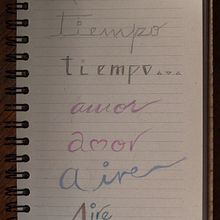 tiempo
tiempo...
amor
amor
aire
Aire